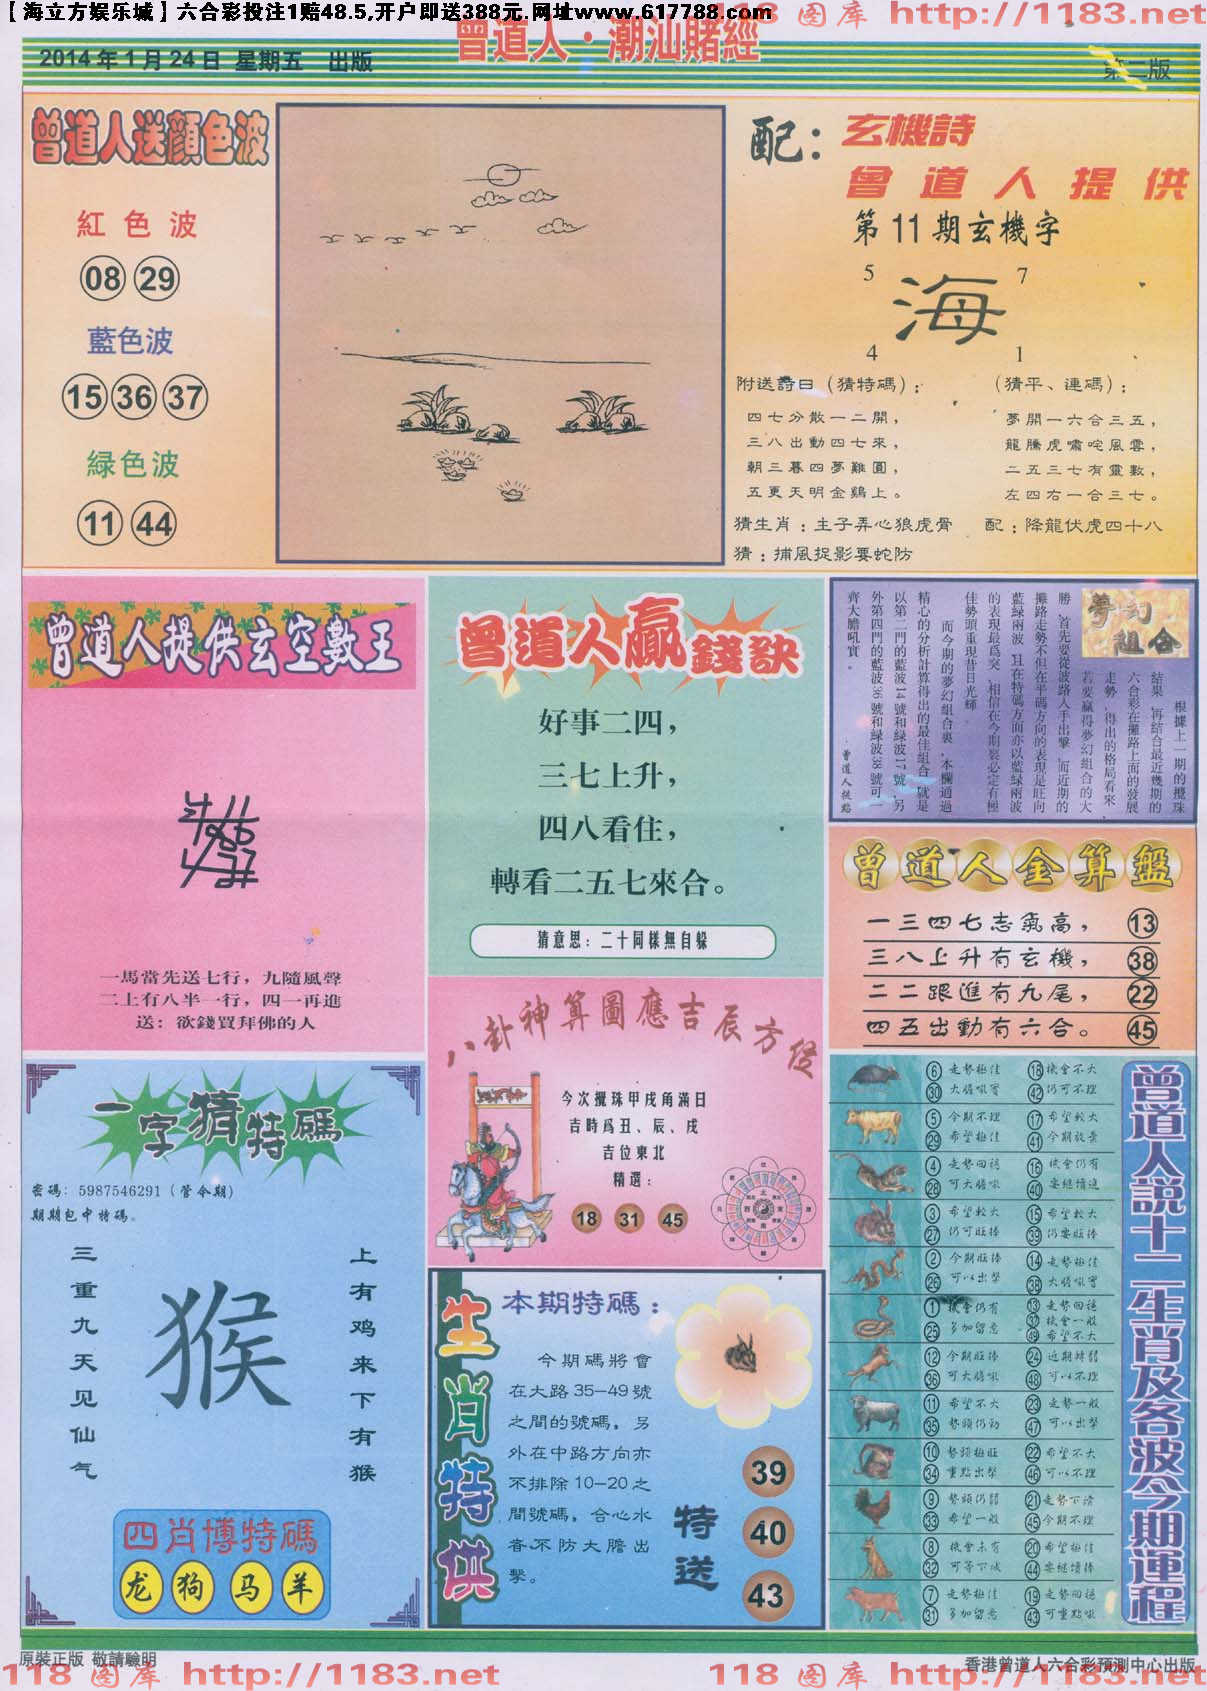 【海立方娱乐城】六合彩投注1赔48.5,开户即送388元.网址www.617788.com
118 图库 http://1183.net
曾道人·潮汕賭經
2014年1月24日 星期五 出版
第二版
曾道人送顔色波
紅色波
08 29
藍色波
15 36 37
緑色波
11 44
配：玄機詩
曾道人提供
第11期玄機字
5 7
海
4 1
附送詩曰（猜特碼）：
四七分散一二開，
三八出動四七來，
朝三暮四夢難圓，
五更天明金鷄上。
（猜平、連碼）：
夢開一六合三五，
龍騰虎嘯咤風雲，
二五三七有靈數，
左四右一合三七。
猜生肖：主子弄心狼虎骨
配：降龍伏虎四十八
猜：捕風捉影要蛇防
曾道人提供玄空數王
一馬當先送七行，九隨風聲
二上有八半一行，四一再進
送：欲錢買拜佛的人
曾道人贏錢訣
好事二四，
三七上升，
四八看住，
轉看二五七來合。
猜意思：二十同樣無自躲
夢幻組合
根據上一期的攪珠
結果，再結合最近幾期的
六合彩在攤路上面的發展
走勢，得出的格局看來，
若要贏得夢幻組合的大
勝，首先要從波路入手出擊，而近期的
攤路走勢不但在半碼方向的表現是旺向
藍緑兩波，且在特碼方面亦以藍緑兩波
的表現最爲突，相信在今期裏必定有極
佳勢頭重現昔日光輝。
而今期的夢幻組合裏，本欄通過
精心的分析計算得出的最佳組合就是
以第二門的藍波14號和緑波17號，另
外第四門的藍波36號和緑波38號可一
齊大膽吼實。
曾道人從路
曾道人金算盤
一三四七志氣高， 13
三八上升有玄機， 38
二二跟進有九尾， 22
四五出動有六合。 45
八卦神算圖應吉辰方位
今次攪珠甲戌角滿日
吉時爲丑、辰、戌
吉位東北
精選：
18 31 45
一字猜特碼
密碼：5987546291（管今期）
期期包中特碼。
三重九天见仙气
猴
上有鸡来下有猴
四肖博特碼
龙 狗 马 羊
生肖特供
本期特碼：
今期碼將會
在大路35—49號
之間的號碼，另
外在中路方向亦
不排除10—20之
間號碼，合心水
者不防大膽出
擊。
特送
39
40
43
曾道人説十二生肖及各波今期運程
6 走勢極佳 18 機會不大
30 大膽吼實 42 仍可不理
5 今期不理 17 希望較大
29 希望極佳 41 今期放棄
4 走勢回穩 16 機會仍有
28 可大膽吼 40 要繼續追
3 希望較大 15 希望較大
27 仍可旺捧 39 仍要旺捧
2 今期旺捧 14 走勢極佳
26 可以出擊 38 大膽吼實
1 機會仍有 13 走勢回穩
25 多加留意 37 機會一般
49 希望不大
12 今期旺捧 24 近期轉弱
36 可大膽吼 48 可以不理
11 希望不大 23 走勢一般
35 勢頭仍勁 47 可以出擊
10 勢頭極旺 22 希望不大
34 重點出擊 46 可以不理
9 勢頭仍弱 21 走勢下滑
33 希望一般 45 今期不理
8 機會未有 20 希望極佳
32 可等下次 44 要繼續捧
7 走勢極佳 19 走勢回穩
31 多加留意 43 可重點吼
原裝正版 敬請驗明
香港曾道人六合彩預測中心出版
118 图库 http://1183.net
118 图库 http://1183.net